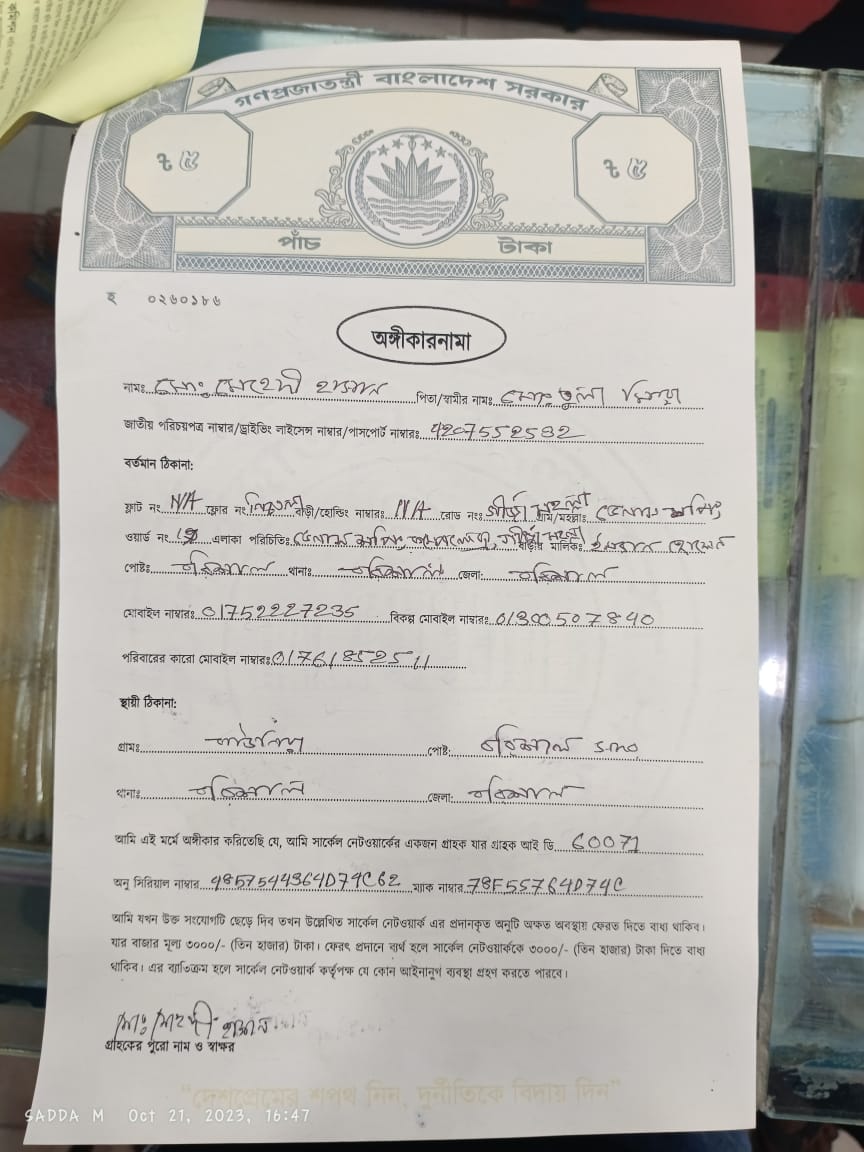 গণপ্রজাতন্ত্রী বাংলাদেশ সরকার
৳ ৫ ৳ ৫
পাঁচ টাকা
হ ০২৬০১৮৬
অঙ্গীকারনামা
নামঃ মোঃ মেহেদী হাসান পিতা/স্বামীর নামঃ মোঃ দুলা মিয়া
জাতীয় পরিচয়পত্র নাম্বার/ড্রাইভিং লাইসেন্স নাম্বার/পাসপোর্ট নাম্বারঃ 4207552582
বর্তমান ঠিকানা:
ফ্লাট নং N/A ফ্লোর নং বাড়ী/হোল্ডিং নাম্বারঃ N/A রোড নংঃ গ্রাম/মহল্লাঃ
ওয়ার্ড নং এলাকা পরিচিতিঃ বাড়ীর মালিকঃ হোসেন
পোষ্টঃ বরিশাল থানাঃ বরিশাল জেলা: বরিশাল
মোবাইল নাম্বারঃ 01752227235 বিকল্প মোবাইল নাম্বারঃ 01300507840
পরিবারের কারো মোবাইল নাম্বারঃ 01761852511
স্থায়ী ঠিকানা:
গ্রামঃ পোষ্ট: বরিশাল
থানাঃ বরিশাল জেলা: বরিশাল
আমি এই মর্মে অঙ্গীকার করিতেছি যে, আমি সার্কেল নেটওয়ার্কের একজন গ্রাহক যার গ্রাহক আই ডি 60071
অনু সিরিয়াল নাম্বার 4857544364D74C62 ম্যাক নাম্বার 78F55764D74C
আমি যখন উক্ত সংযোগটি ছেড়ে দিব তখন উল্লেখিত সার্কেল নেটওয়ার্ক এর প্রদানকৃত অনুটি অক্ষত অবস্থায় ফেরত দিতে বাধ্য থাকিব।
যার বাজার মূল্য ৩০০০/- (তিন হাজার) টাকা। ফেরৎ প্রদানে ব্যর্থ হলে সার্কেল নেটওয়ার্ককে ৩০০০/- (তিন হাজার) টাকা দিতে বাধ্য
থাকিব। এর ব্যতিক্রম হলে সার্কেল নেটওয়ার্ক কর্তৃপক্ষ যে কোন আইনানুগ ব্যবস্থা গ্রহণ করতে পারবে।
মোঃ মেহেদী হাসান
গ্রাহকের পুরো নাম ও স্বাক্ষর
"দেশপ্রেমের শপথ নিন, দুর্নীতিকে বিদায় দিন"
SADDA M Oct 21, 2023, 16:47